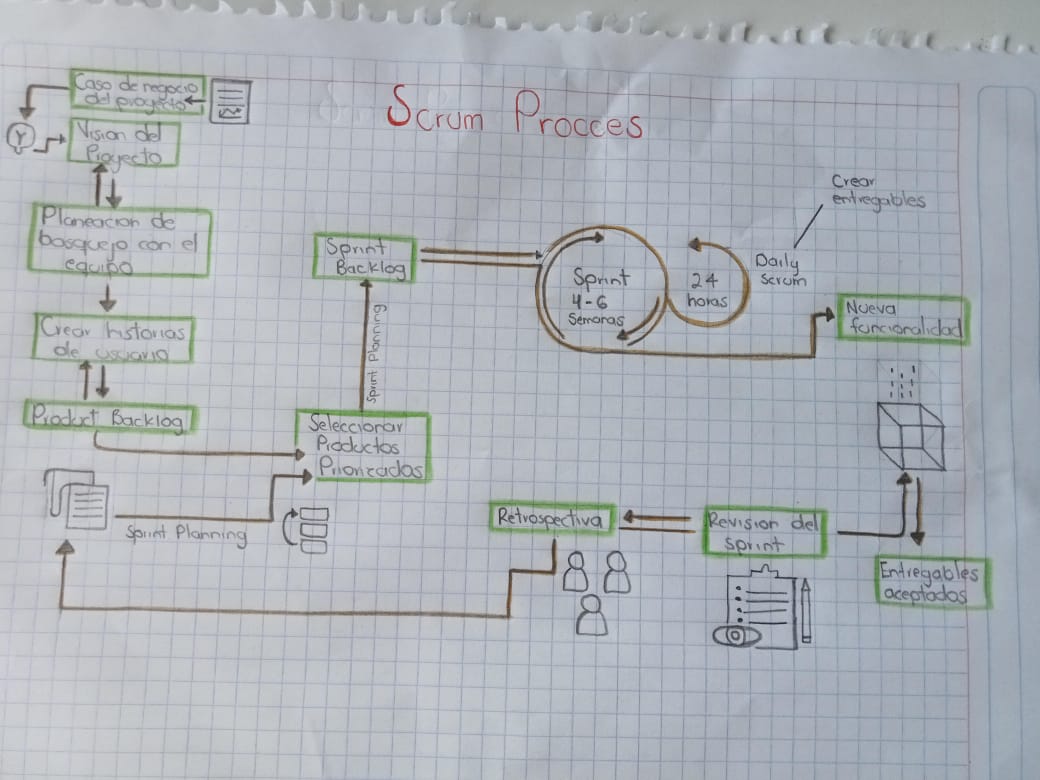 Scrum Procces
Caso de negocio
del proyecto
Y
Vision del
Proyecto
Planeacion de
bosquejo con el
equipo
Crear historias
de usuario
Product Backlog
Sprint Planning
Seleccionar
Productos
Priorizados
Sprint Planning
Sprint
Backlog
Sprint
4-6
Semanas
24
horas
Daily
scrum
Crear
entregables
Nueva
funcionalidad
Entregables
aceptados
Revision del
sprint
Retrospectiva